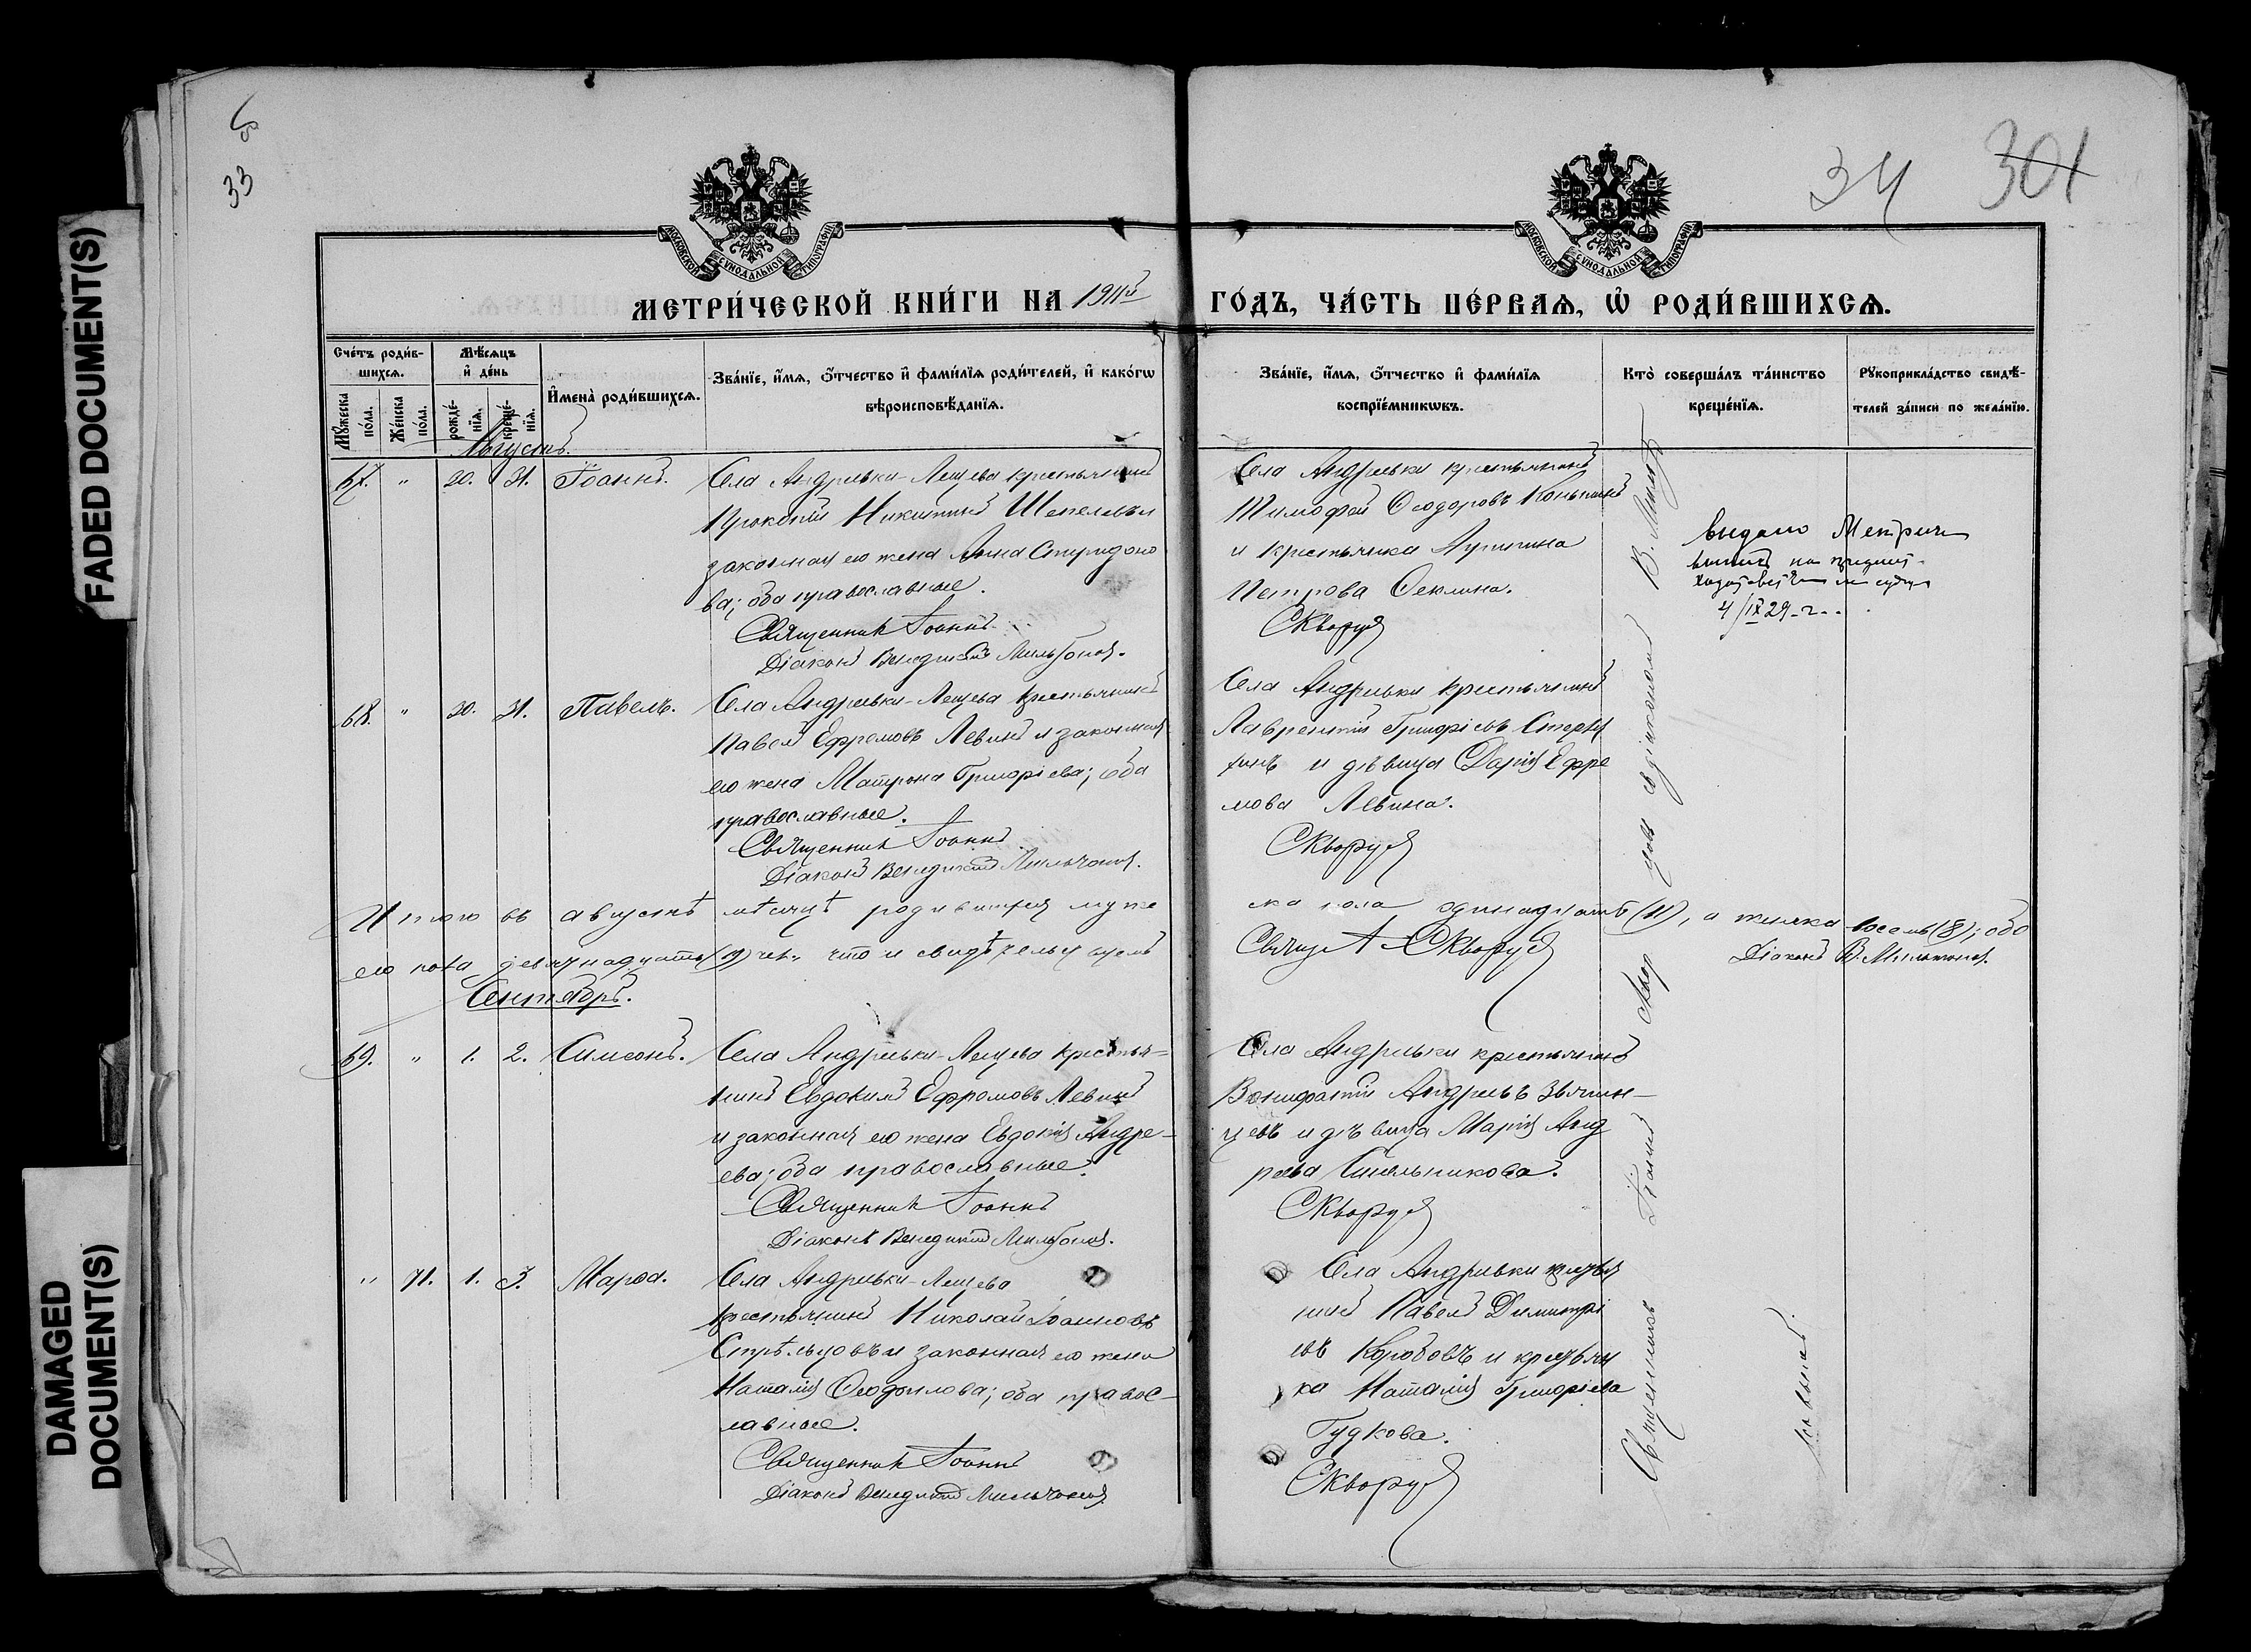 FADED DOCUMENT(S)
DAMAGED
DOCUMENT(S)
33
34
301
МОСКОВСКОЙ СѴНОДАЛЬНОЙ ТИПОГРАФІИ
МОСКОВСКОЙ СѴНОДАЛЬНОЙ ТИПОГРАФІИ
МЕТРИ́ЧЕСКОЙ КНИ́ГИ НА 1911й ГО́ДЪ, ЧА́СТЬ ПЕ́РВАѦ, Ѡ҆ РОДИ́ВШИХСѦ.
Сче́тъ роди́в-
шихся.
Мꙋ́жеска
по́ла.
Же́нска
по́ла.
Мѣ́сяцъ
и҆ де́нь
рожде́-
нїя.
креще́-
нїя.
И҆мена̀ роди́вшихся.
Зва́нїе, и҆́мя, ѻ҆́тчество и҆ фами́лїя роди́телей, и҆ како́гѡ
вѣроисповѣ́данїя.
Зва́нїе, и҆́мя, ѻ҆́тчество и҆ фами́лїя
воспрїе́мникѡвъ.
Кто̀ соверша́лъ та́инство
креще́нїя.
Рꙋкоприкла́дство свидѣ́-
телей за́писи по жела́нїю.
Августъ.
67. " 20. 31. Іоаннъ.
Села Андреевки-Лещева крестьянинъ
Прокопій Никитинъ Шепелевъ и
законная его жена Анна Спиридоно
ва; оба православные.
Священникъ Іоаннъ
Діаконъ Венедиктъ Мильтоновъ.
Села Андреевки крестьянинъ
Тимофей Ѳеодоровъ Конькинъ
и крестьянка
Петрова Ѳеклина.
Скворцовъ
выдано Метрич
4/IX 29 г.
68. " 30. 31. Павелъ.
Села Андреевки-Лещева крестьянинъ
Павелъ Ефремовъ Левинъ и законная
его жена Матрона Григоріева; оба
православные.
Священникъ Іоаннъ
Діаконъ Венедиктъ Мильтоновъ.
Села Андреевки крестьянинъ
Лаврентій Григоріевъ
и дѣвица Дарія Ефре
мова Левина.
Скворцовъ
Итого въ августѣ мѣсяцѣ родившихся муже
ска пола одинадцать (11), а женска восемь (8); обо
его пола девятнадцать (19) чел. что и свидѣтельствуемъ
Священ. І. Скворцовъ
Діаконъ В. Мильтоновъ.
Сентябрь.
69. " 1. 2. Симеонъ.
Села Андреевки-Лещева крестья-
нинъ Евдокимъ Ефремовъ Левинъ
и законная его жена Евдокія Андре-
ева; оба православные.
Священникъ Іоаннъ
Діаконъ Венедиктъ Мильтоновъ.
Села Андреевки крестьянинъ
Вонифатій Андреевъ Звягин-
цевъ и дѣвица Марія Анд
реева Синельникова.
Скворцовъ
" 71. 1. 3. Марѳа.
Села Андреевки-Лещева
крестьянинъ Николай Іоанновъ
Стрѣльцовъ и законная его жена
Наталія; оба правос-
лавные.
Священникъ Іоаннъ
Діаконъ Венедиктъ Мильтоновъ
Села Андреевки крестья
нинъ Павелъ Димитрі
евъ Коробовъ и крестьян
ка Наталія Григоріева
Гудкова.
Скворцовъ
Священникъ Іоаннъ Сквор цовъ съ діакономъ В. Мильто
новымъ.